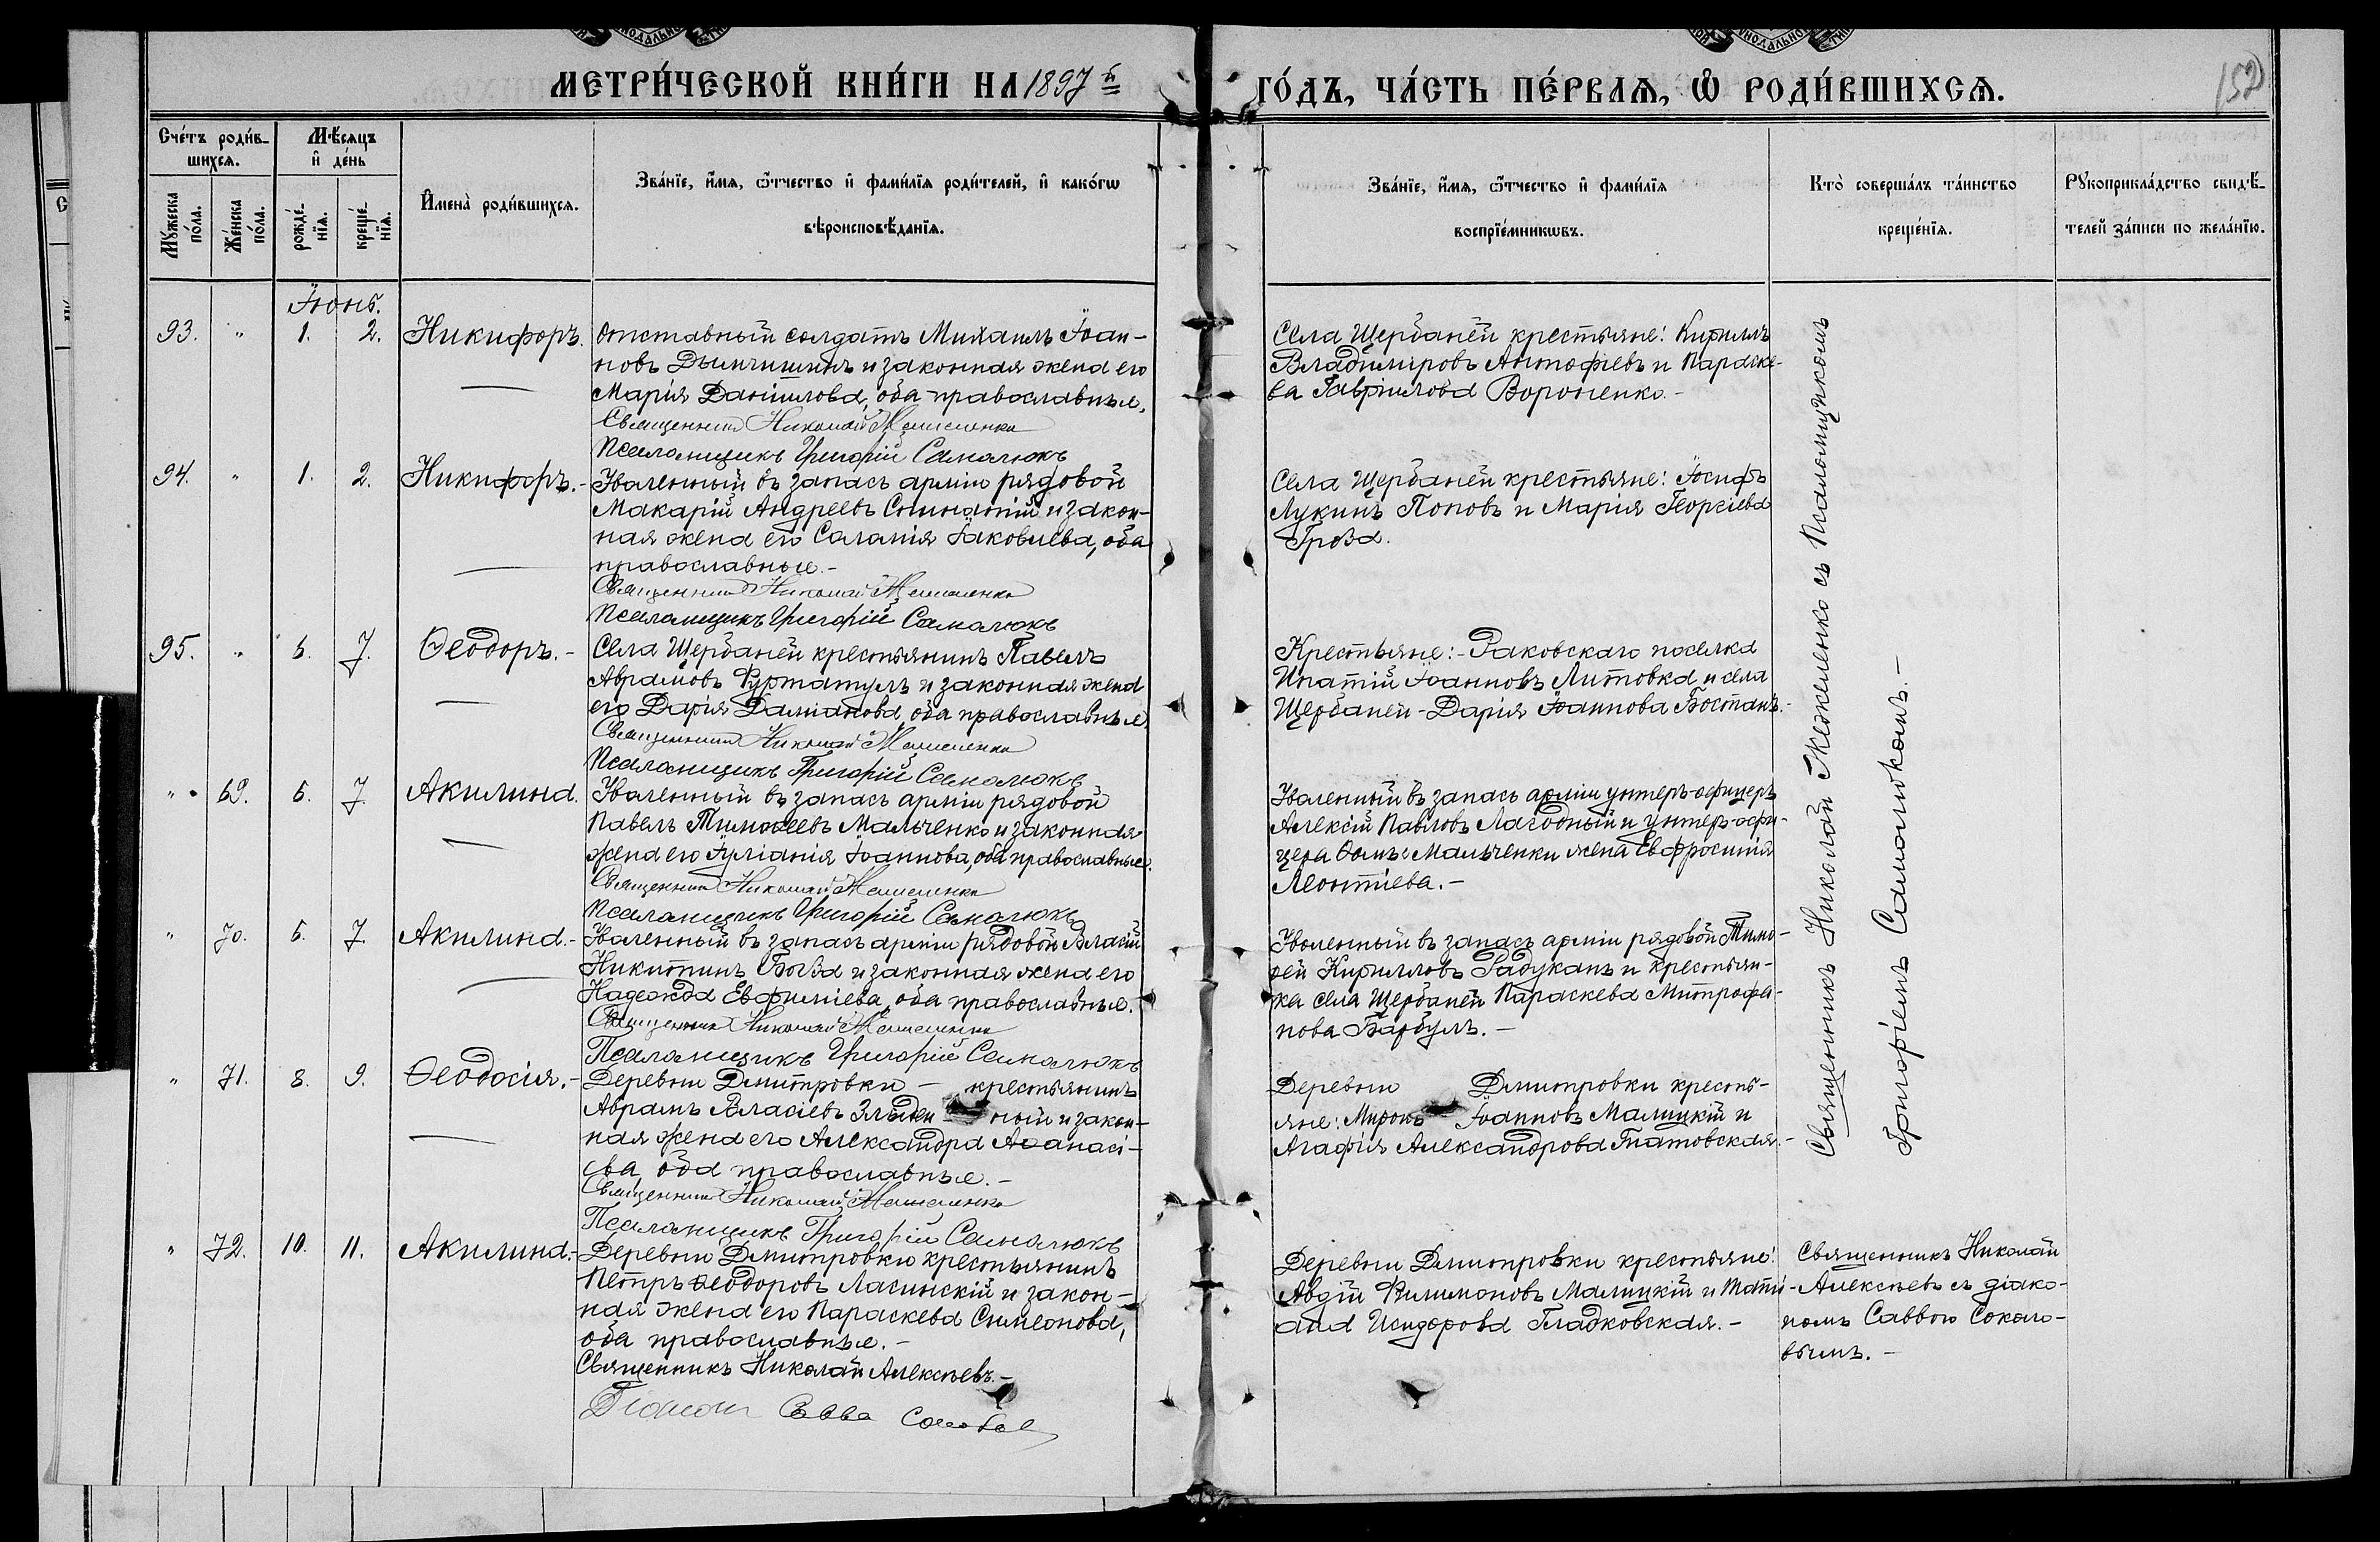 МЕТРИ́ЧЕСКОЙ КНИ́ГИ НА 1897й ГО́ДЪ, ЧА́СТЬ ПЕ́РВАѦ, Ѡ҆ РОДИ́ВШИХСѦ.
152
Сче́тъ роди́в-
шихсѧ.
Мѣ́сѧцъ
и҆ де́нь
Мꙋ́жеска по́ла.
Же́нска по́ла.
рожде́-
нїѧ.
креще́-
нїѧ.
И҆мена̀ роди́вшихсѧ.
Зва́нїе, и҆́мѧ, ѻ҆́тчество и҆ фами́лїѧ роди́телей, и҆ како́гѡ
вѣроисповѣ́данїѧ.
Зва́нїе, и҆́мѧ, ѻ҆́тчество и҆ фами́лїѧ
воспрїе́мникѡвъ.
Кто̀ соверша́лъ та́инство
креще́нїѧ.
Рꙋкоприкла́дство свидѣ́-
телей за́писи по жела́нїю.
Іюнь.
93. " 1. 2. Никифоръ.
Отставный солдатъ Михаилъ Іоан-
новъ Дымчишинъ и законная жена его
Марія Даніилова, оба православные.
Священникъ Николай Жежеленко
Псаломщикъ Григорій Самолюкъ
Села Щербаней крестьяне: Кириллъ
Владиміровъ Антофіевъ и Параске-
ва Гавріилова Вороненко.-
94. " 1. 2. Никифоръ.-
Уволенный въ запасъ арміи рядовой
Макарій Андреевъ Спинатій и закон-
ная жена его Саламія Іаковлева, оба
православные.-
Священникъ Николай Жежеленко
Псаломщикъ Григорій Самолюкъ
Села Щербаней крестьяне: Іосифъ
Лукинъ Поповъ и Марія Георгіева
Гроза.
95. " 5. 7. Ѳеодоръ.-
Села Щербаней крестьянинъ Павелъ
Аврамовъ Фуртатулъ и законная жена
его Дарія Даміанова, оба православные.
Священникъ Николай Жежеленко
Псаломщикъ Григорій Самолюкъ
Крестьяне:- Раковскаго поселка
Ипатій Іоанновъ Литовка и села
Щербаней - Дарія Іоаннова Бостанъ.-
" 69. 5. 7. Акилина.
Уволенный въ запасъ арміи рядовой
Павелъ Тимоѳеевъ Мальченко и законная
жена его Іуліанія Іоаннова, оба православные.
Священникъ Николай Жежеленко
Псаломщикъ Григорій Самолюкъ
Уволенный въ запасъ арміи унтеръ-офицеръ
Алексій Павловъ Лагодный и унтеръ-офи-
цера Ѳомы Мальченки жена Евфросинія
Леонтіева.-
" 70. 5. 7. Акилина.-
Уволенный въ запасъ арміи рядовой Власій
Никитинъ Боѣза и законная жена его
Надежда Евфиміева, оба православные.
Священникъ Николай Жежеленко
Псаломщикъ Григорій Самолюкъ
Уволенный въ запасъ арміи рядовой Тимо-
ѳей Кирилловъ Радуканъ и крестьян-
ка села Щербаней Параскева Митрофа-
нова Барбулъ.-
" 71. 8. 9. Ѳеодосія.-
Деревни Дмитровки - крестьянинъ
Аврамъ Власіевъ Злыден ный и закон-
ная жена его Александра Аѳанасі-
ева, оба православные.-
Священникъ Николай Жежеленко
Псаломщикъ Григорій Самолюкъ
Деревни Дмитровки кресть-
яне: Миронъ Іоанновъ Малицкій и
Агафія Александрова Гнатовская.-
Священникъ Николай Жежеленко съ Псаломщикомъ
Григоріемъ Самолюкомъ.-
" 72. 10. 11. Акилина.-
Деревни Дмитровки крестьянинъ
Петръ Ѳеодоровъ Ласинскій и закон-
ная жена его Параскева Симеонова,
оба православные.-
Священникъ Николай Алексѣевъ.-
Діаконъ Савва Соколовъ
Деревни Дмитровки крестьяне:
Авдій Филимоновъ Малицкій и Тати-
ана Исидорова Гладковская.-
Священникъ Николай
Алексѣевъ съ діако-
номъ Саввою Соколо-
вымъ.-